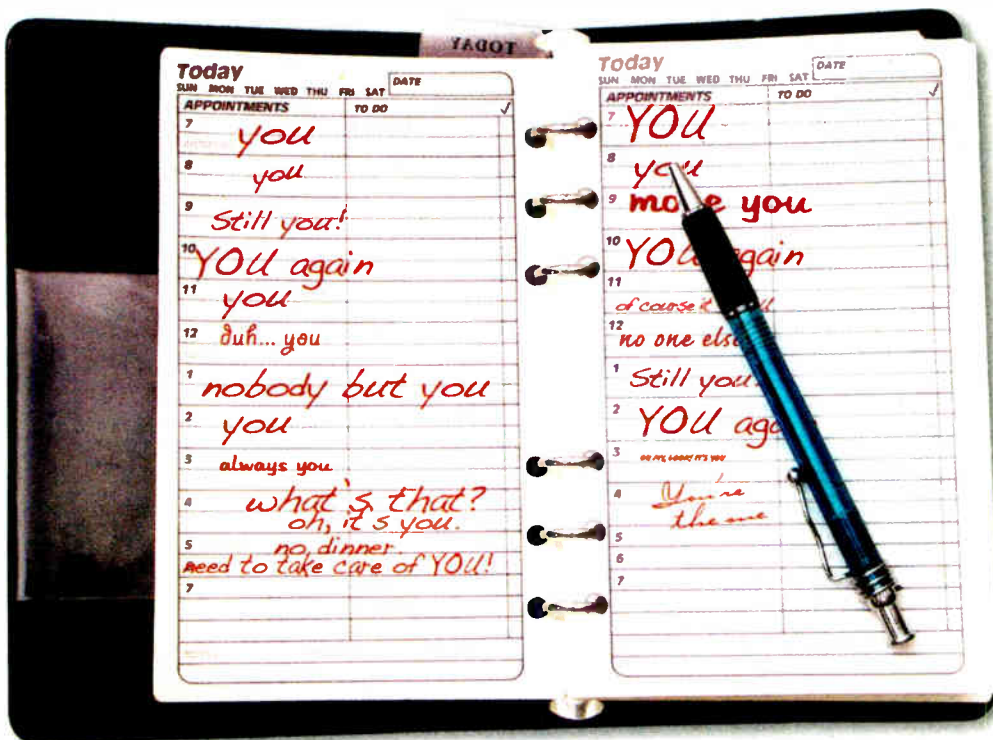 TODAY
Today
SUN MON TUE WED THU FRI SAT
DATE
APPOINTMENTS
TO DO
7 you
8 you
9 Still you!
10 YOU again
11 you
12 duh... you
1 nobody but you
2 you
3 always you
4 what's that?
oh, it's you.
5 no, dinner.
need to take care of YOU!
7
Today
SUN MON TUE WED THU FRI SAT
DATE
APPOINTMENTS
TO DO
7 YOU
8 you
9 more you
10 YOU again
11 of course it
12 no one else
1 Still you
2 YOU
3 OH MY, LOOK! IT'S YOU
4 You're
the one
5
6
7